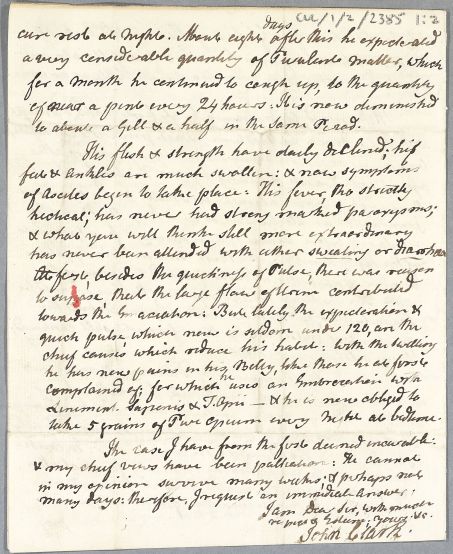 CUL/1/2/2385 1:2
cure rest at night. About eight days after this he expectorated
a very considerable quantity of Purulent matter, which
for a month he continued to cough up, to the quantity
of near a pint every 24 hours: It is now diminished
to about a Gill & a half in the same Period.
His flesh & strength have daily declined; his
feet & Ankles are much swollen: & now symptoms
of Ascites begin to take place: His fever, tho strictly
hectical; has never had strong marked paroxysms;
& what you will think still more extraordinary
has never been attended with either sweating or diarrhœa
At first, besides the quickness of Pulse, there was reason
to supose, that the large flow of Urine contributed
towards the Emaciation: But lately the expectoration &
quick pulse, which now is seldom under 120, are the
chief causes which reduce his habit: With the swelling
he has now pains in his Belly, like those he at first
complained of; for which he uses an Embrocation with
Liniment. Saponis & T. Opii — & he is now obliged to
take 5 grains of Pure Opium every Night at bedtime.
The case I have from the first deemed incurable:
& my chief views have been palliation: He cannot
in my opinion survive many weeks; & perhaps not
many days: therefore, I request an immediate Answer.
I am Dear Sir, with much
respect & Esteem, yours &c.
John Clark.